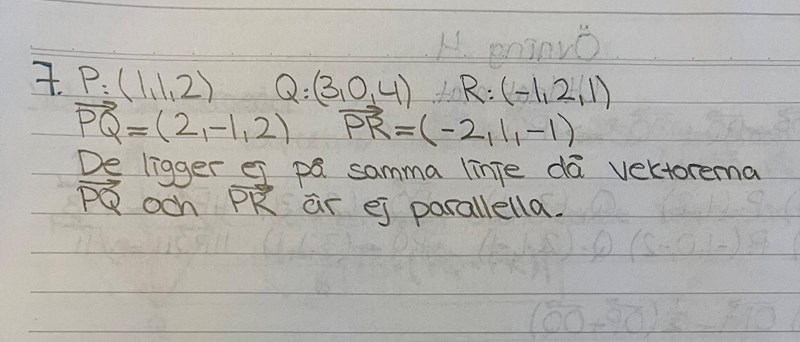 7. P:(1,1,2) Q:(3,0,4) R:(-1,2,1)
PQ=(2,-1,2) PR=(-2,1,-1)
De ligger ej på samma linje då vektorerna
PQ och PR är ej parallella.